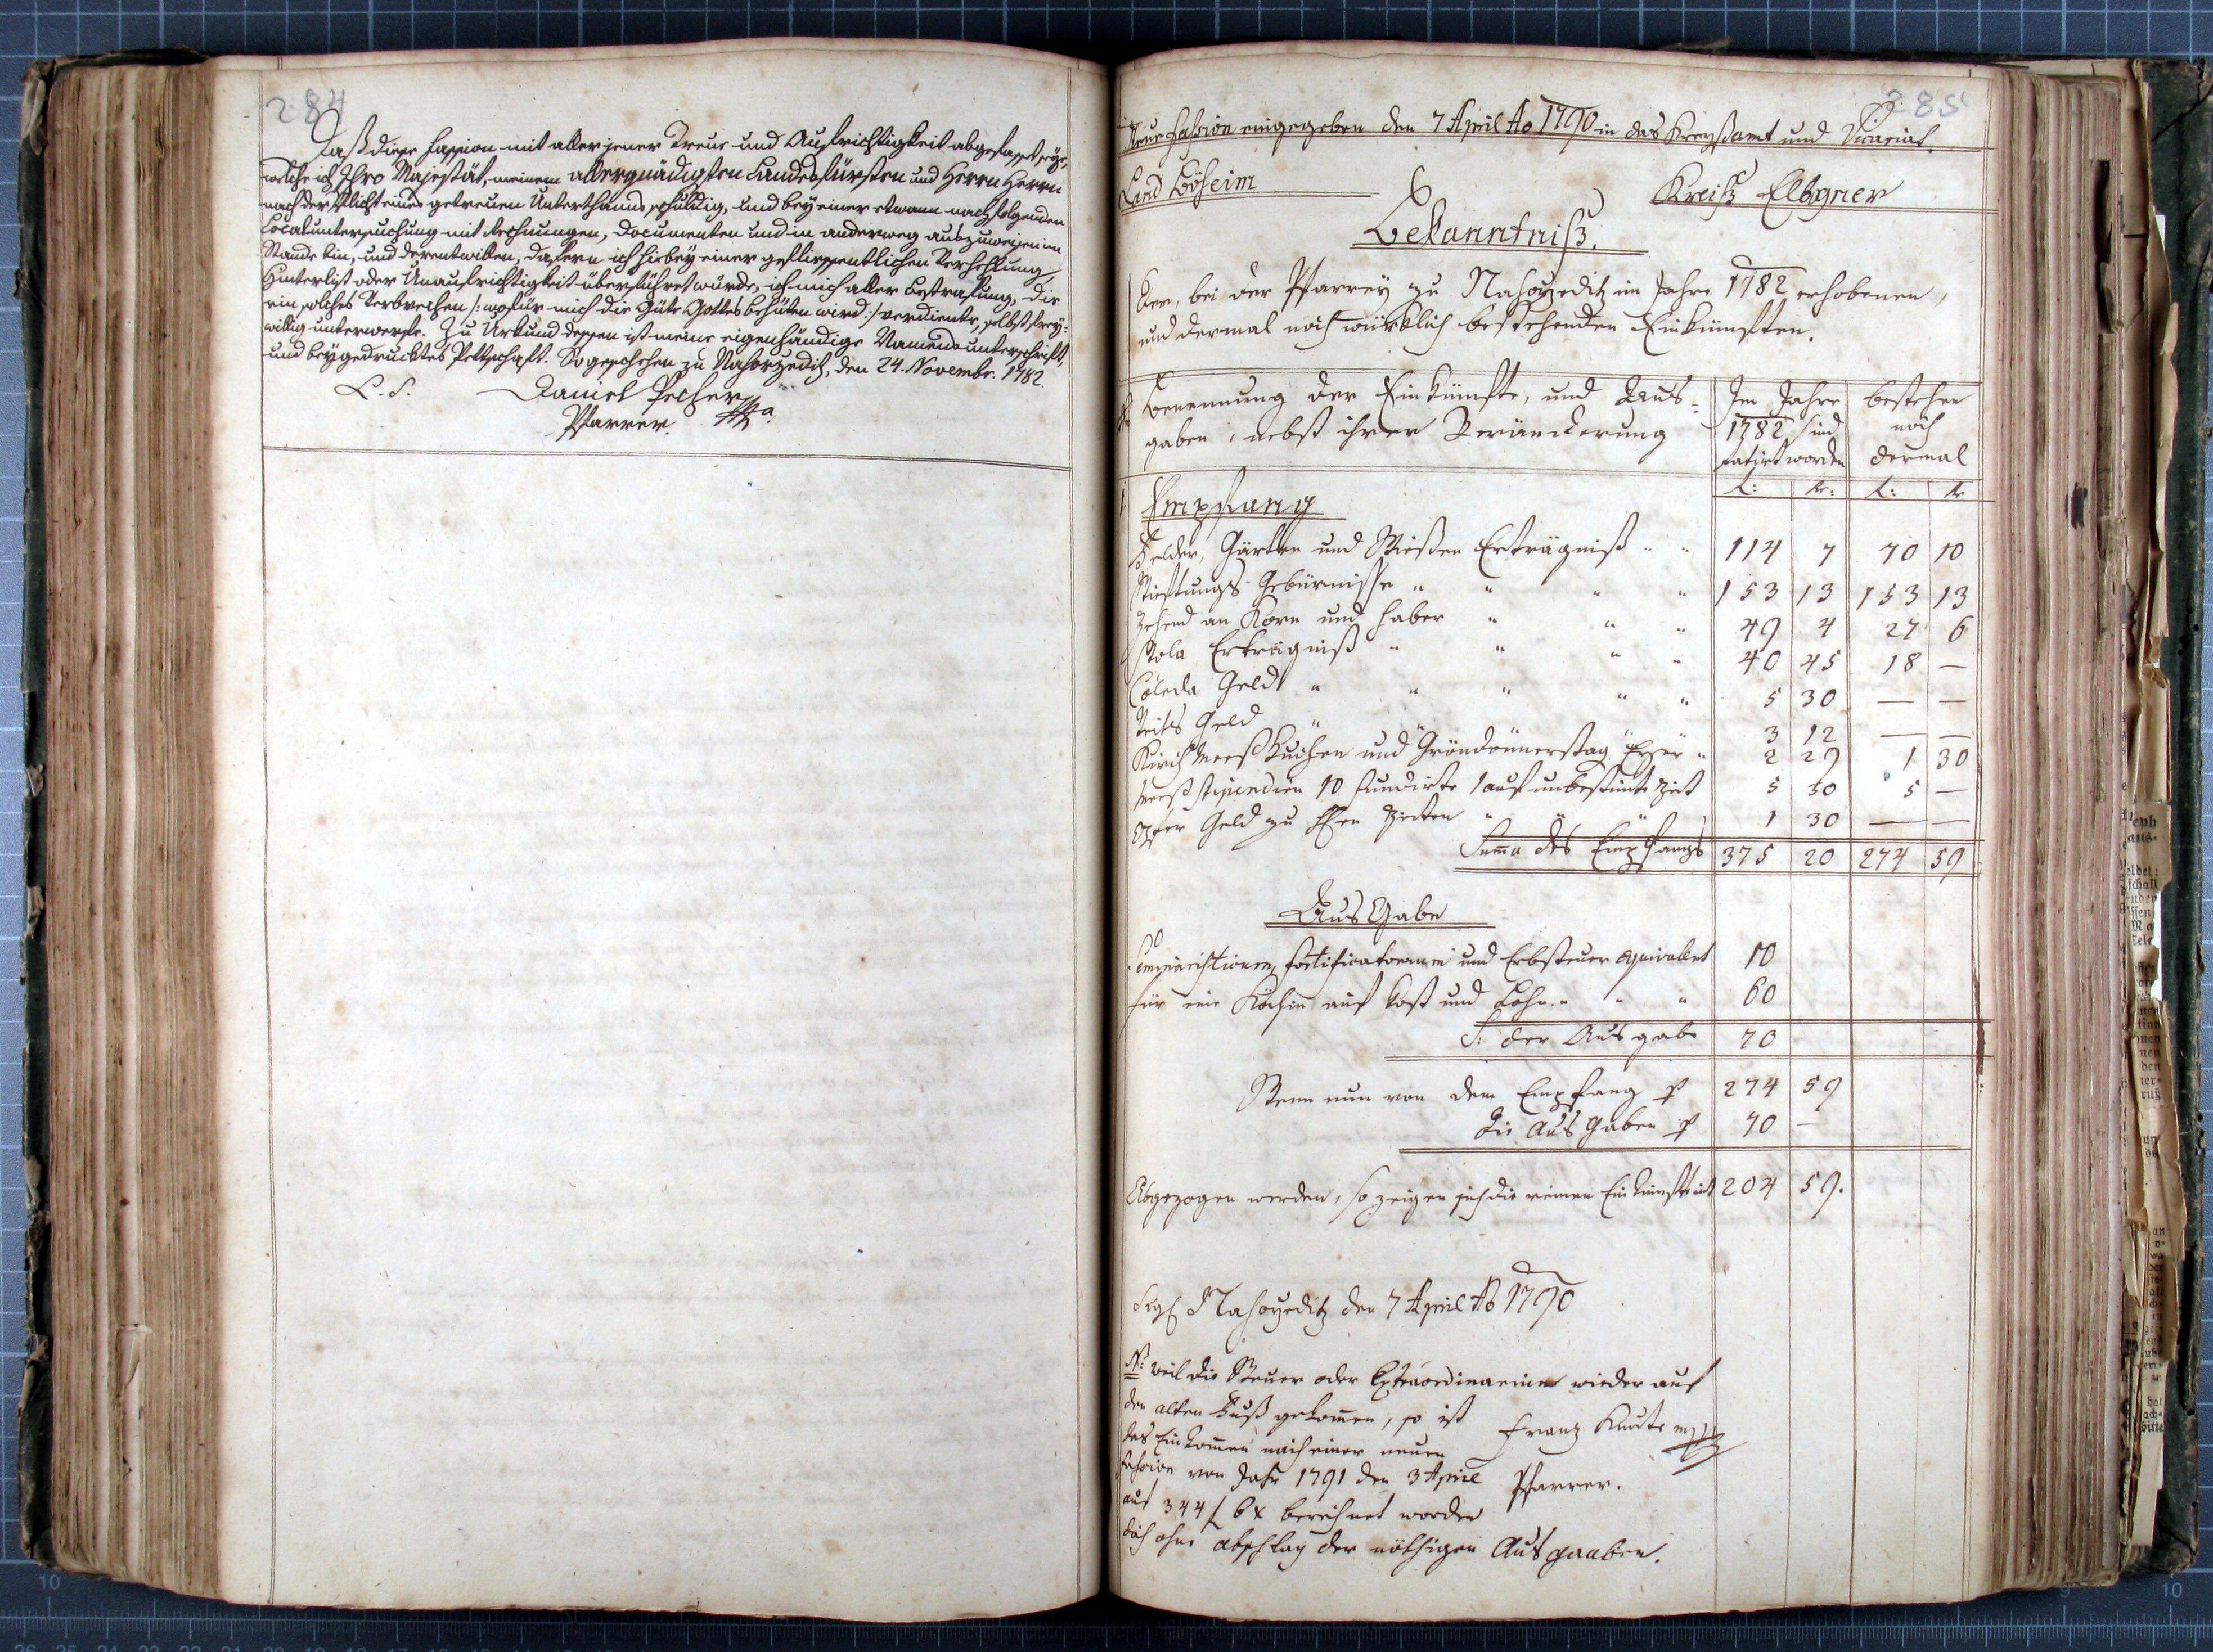 284
Daß diese Fassion mit aller jener Treue und Aufrichtigkeit abgefasset seye,
welche ich Ihro Majestät, meinem allergnädigsten Landesfürsten und Herrn Herrn
nach der Pflicht eines getreuen Unterthanns schuldig, und bey einer etwann nachfolgenden
Localuntersuchung mit Rechnungen, Documenten und in anderweg auszuweisen im
Stande bin, und derentwillen, dafern ich hierbey einer geflissentlichen Verhehlung
Hinterlist oder Unaufrichtigkeit überführet würde, ich mich aller Bestrafung, die
ein solches Verbrechen /: wofür mich die Güte Gottes behüten wird :/ verdiente, selbst frey-
willig unterwerfe. Zu Urkund dessen ist meine eigenhändige Namensunterschrift,
und beygedrucktes Pettschaft. So geschehen zu Nahorzeditz, den 24. Novembr. 1782.
L. S. Daniel Pecher
Pfarrer. mpa
285
Neue Fassion eingegeben den 7 April Ao 1790 in das Kreyßamt und Vicariat.
Land Böheim Kreiß Elbogner
Bekanntniß.
Der, bei der Pfarrey zu Nahorzeditz im Jahre 1782 erhobenen,
und dermal noch würklich bestehenden Einkünften.
Benennung der Einkünfte, und Aus- Im Jahre bestehen
gaben, nebst ihrer Veränderung 1782 sind noch
fatirt worden dermal
f: kr: f: kr
Empfang
Felder, Gärten und Wießen Erträgniß " " 114 7 70 10
Stiftungs Gebürnisse " " " " 153 13 153 13
Zehend an Korn und Haber " " " 49 4 27 6
Stola Erträgniß " " " " 40 45 18 —
Coleda Geld " " " " " 5 30 — —
Geld " " " 3 12 — —
Kirchweeß Kuchen und Gründonnerstag Eyer " 2 29 1 30
Meeß stipendien 10 fundirte 1 auf unbestimte Zeit 5 30 5 —
Opfer Geld zu Zeiten " " " 1 30 — —
Suma des Empfangs 375 20 274 59
Aus Gabe
fortificatorium und Erbsteuer equivalent 10
für eine Köchin auf Kost und Lohn " " " 60
S: der Ausgabe 70
Wenn nun von dem Empfang p 274 59
die Ausgaben p 70 —
Abgezogen werden, so zeigen sich die reinen Einkünfte mit 204 59.
Sigl Nahorzeditz den 7 April Ao 1790
N: weil die Steuer oder Extraordinarium wieder auf
den alten Fuß gekomen, so ist Franz Knute mpp
das Einkomen nach einer neuen
Fassion von Jahr 1791 den 3 April Pfarrer.
auf 344 f 6 x berechnet worden
doch ohne abschlag der nöthigen Ausgaaben.